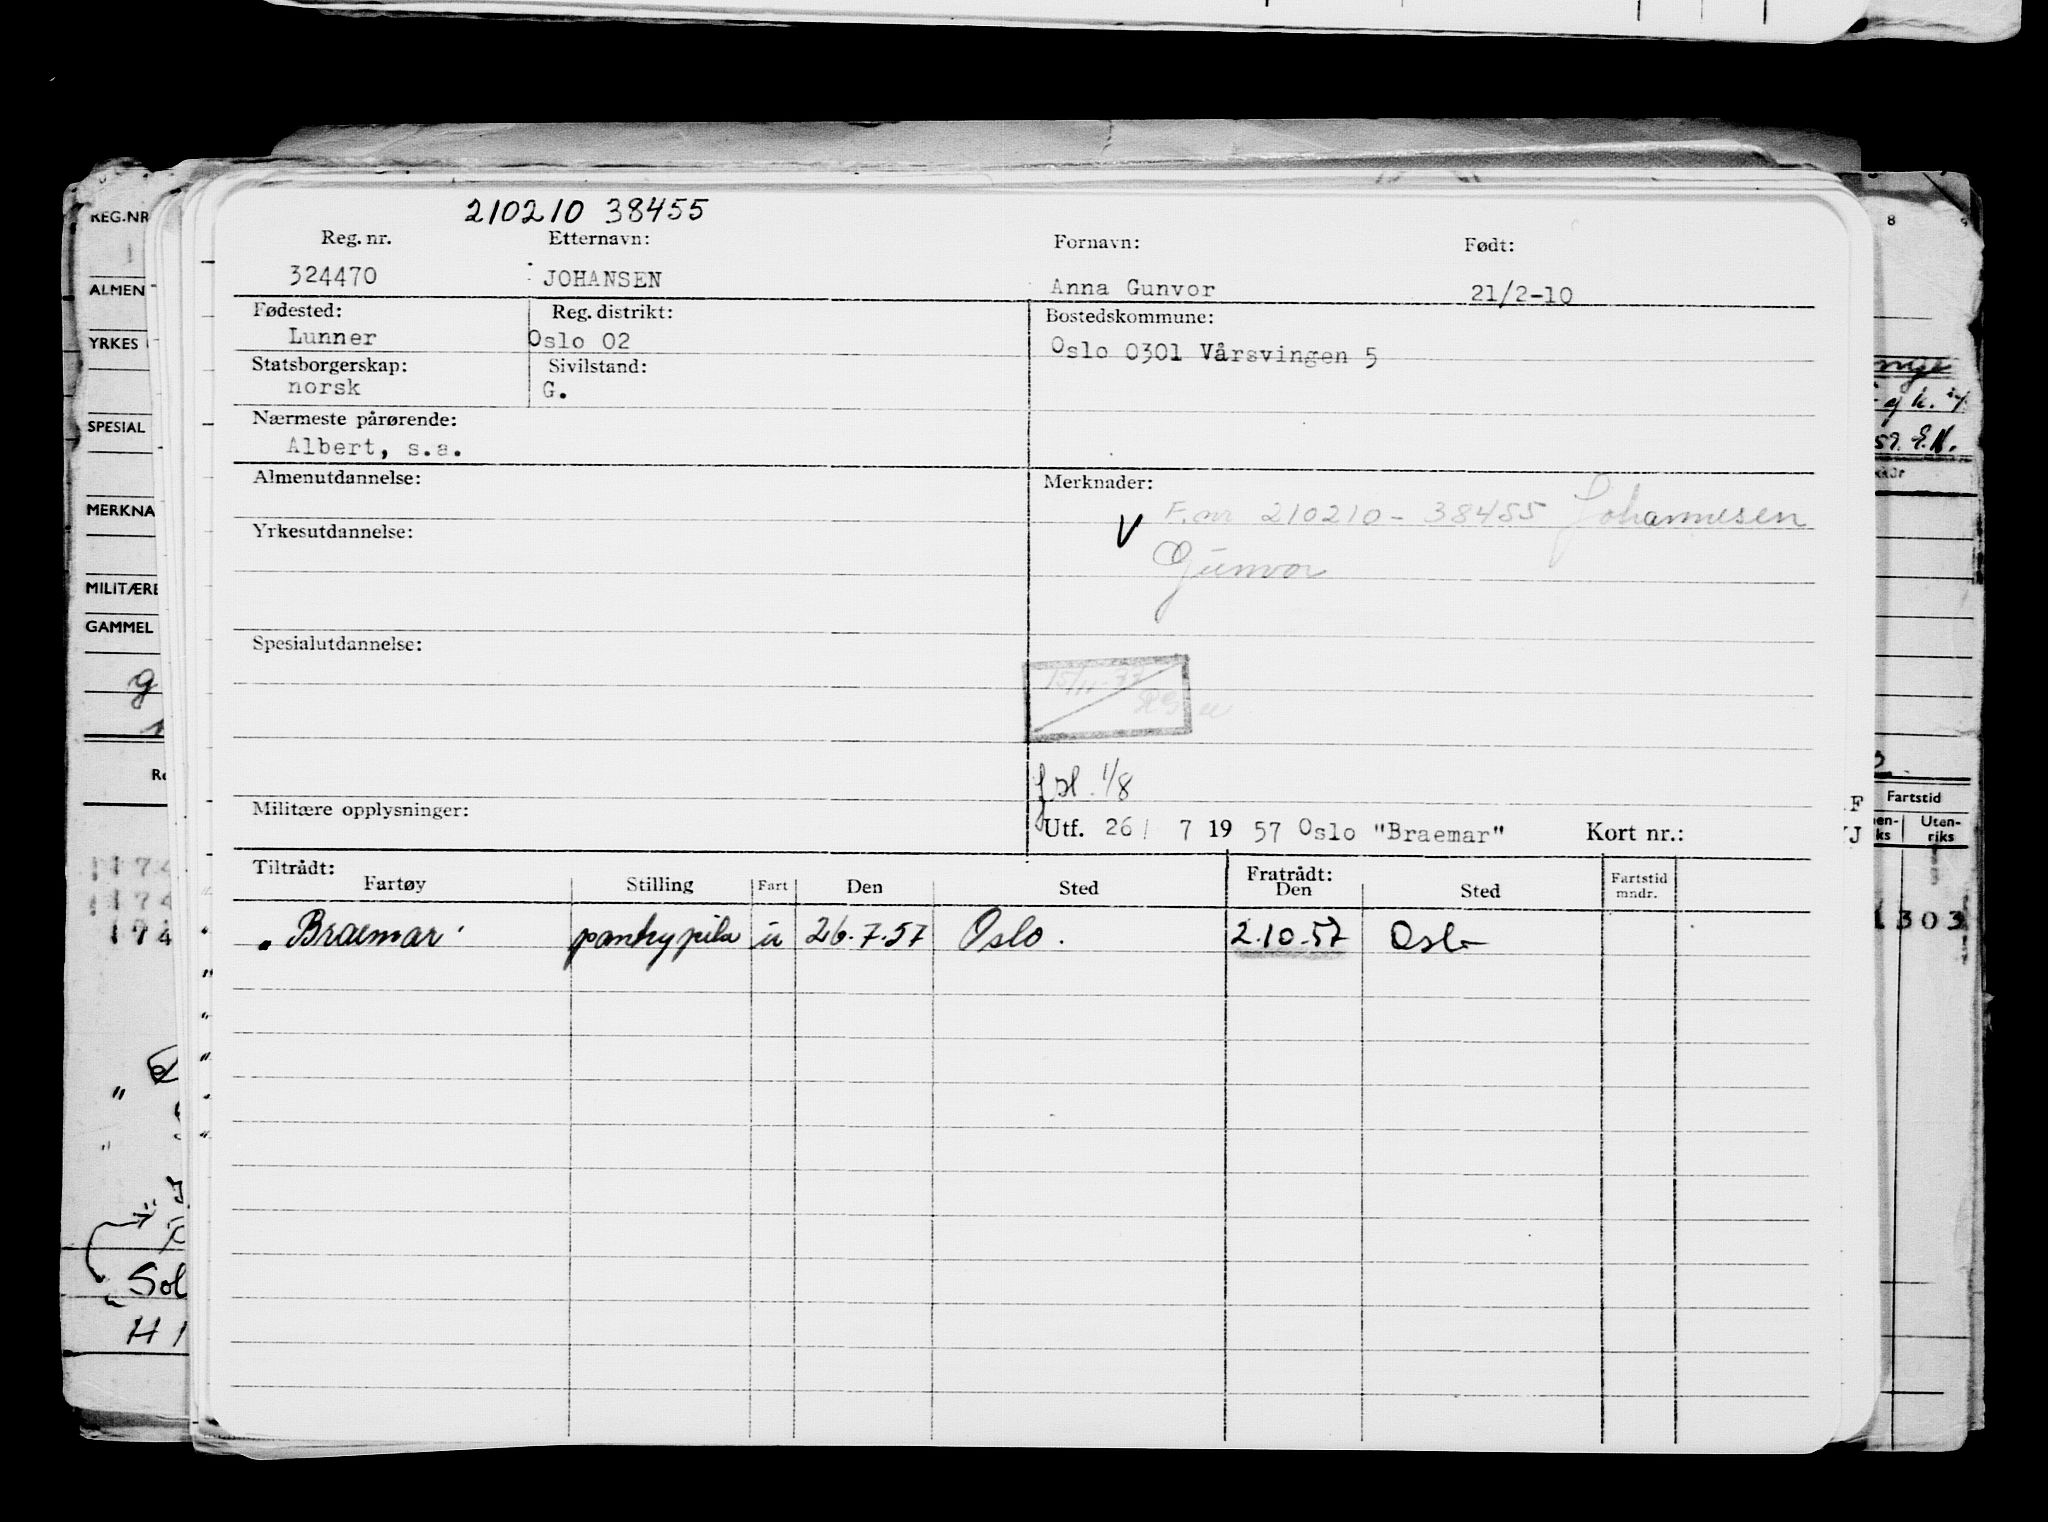 210210 38455
Reg. nr. Etternavn: Fornavn: Født:
324470 JOHANSEN Anna Gunvor 21/2-10
Fødested: Reg. distrikt: Bostedskommune:
Lunner Oslo 02 Oslo 0301 Vårsvingen 5
Statsborgerskap: Sivilstand:
norsk G.
Nærmeste pårørende:
Albert, s.a.
Almenutdannelse: Merknader:
V F.nr 210210-38455 Johannesen
Yrkesutdannelse:
Gunvor
Spesialutdannelse:
15/11-
1/8
Militære opplysninger:
Utf. 26/ 7 19 57 Oslo "Braemar" Kort nr.:
Tiltrådt: Fratrådt:
Fartøy Stilling Fart Den Sted Den Sted Fartstid mndr.
"Braemar" pantrypike u 26.7.57 Oslo. 2.10.57 Oslo
REG.NR
ALMEN
YRKES
SPESIAL
MERKNA
MILITÆRE
GAMMEL
174
174
174
Sol
H
8
59. E.N.
F
Fartstid
J
Uten-
riks
1303